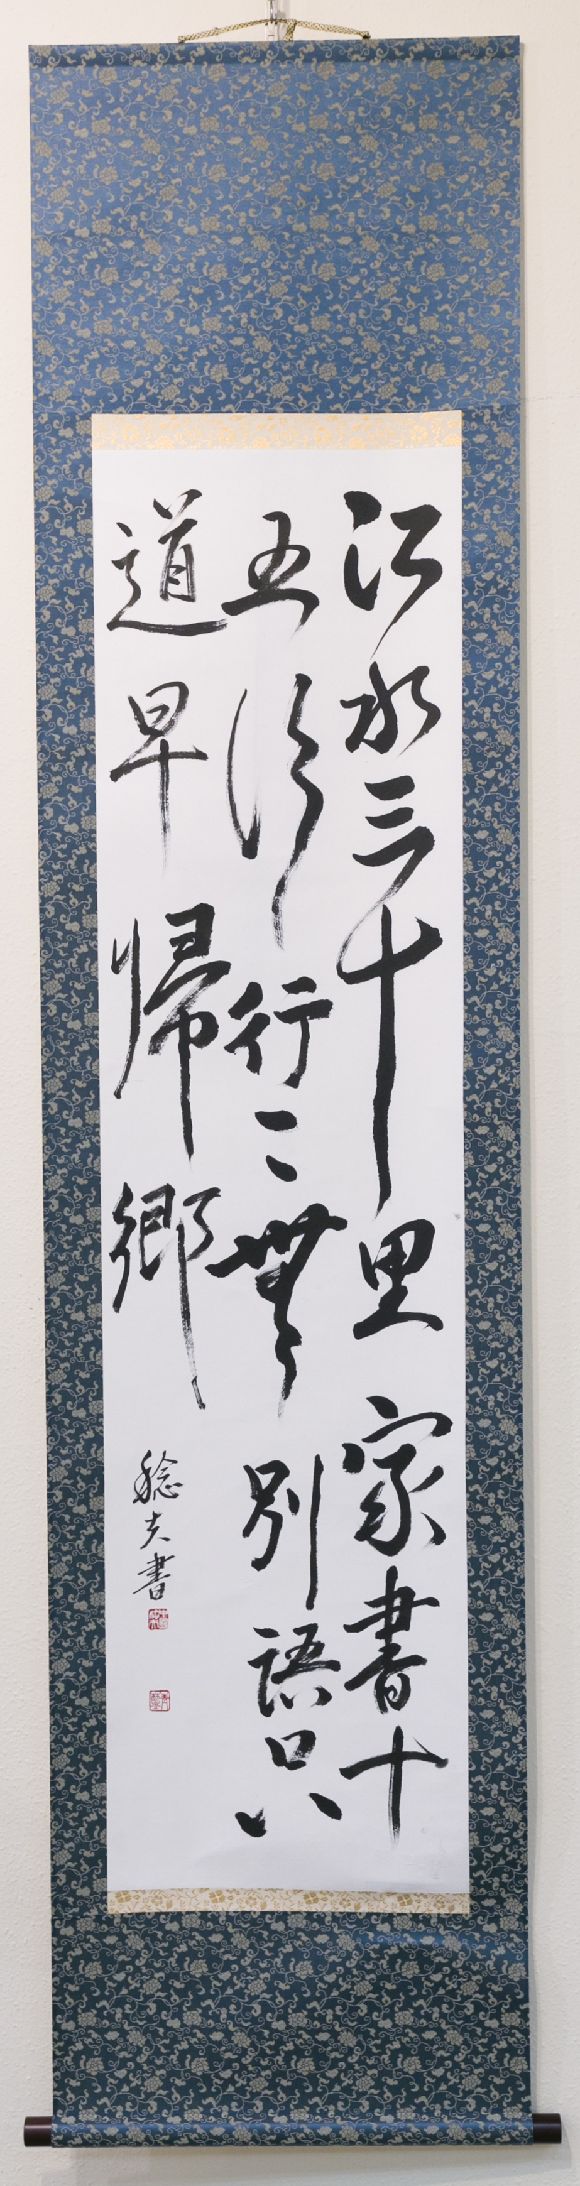 江水三十里家書十
五行行〻無別語只
道早帰郷
稔夫書